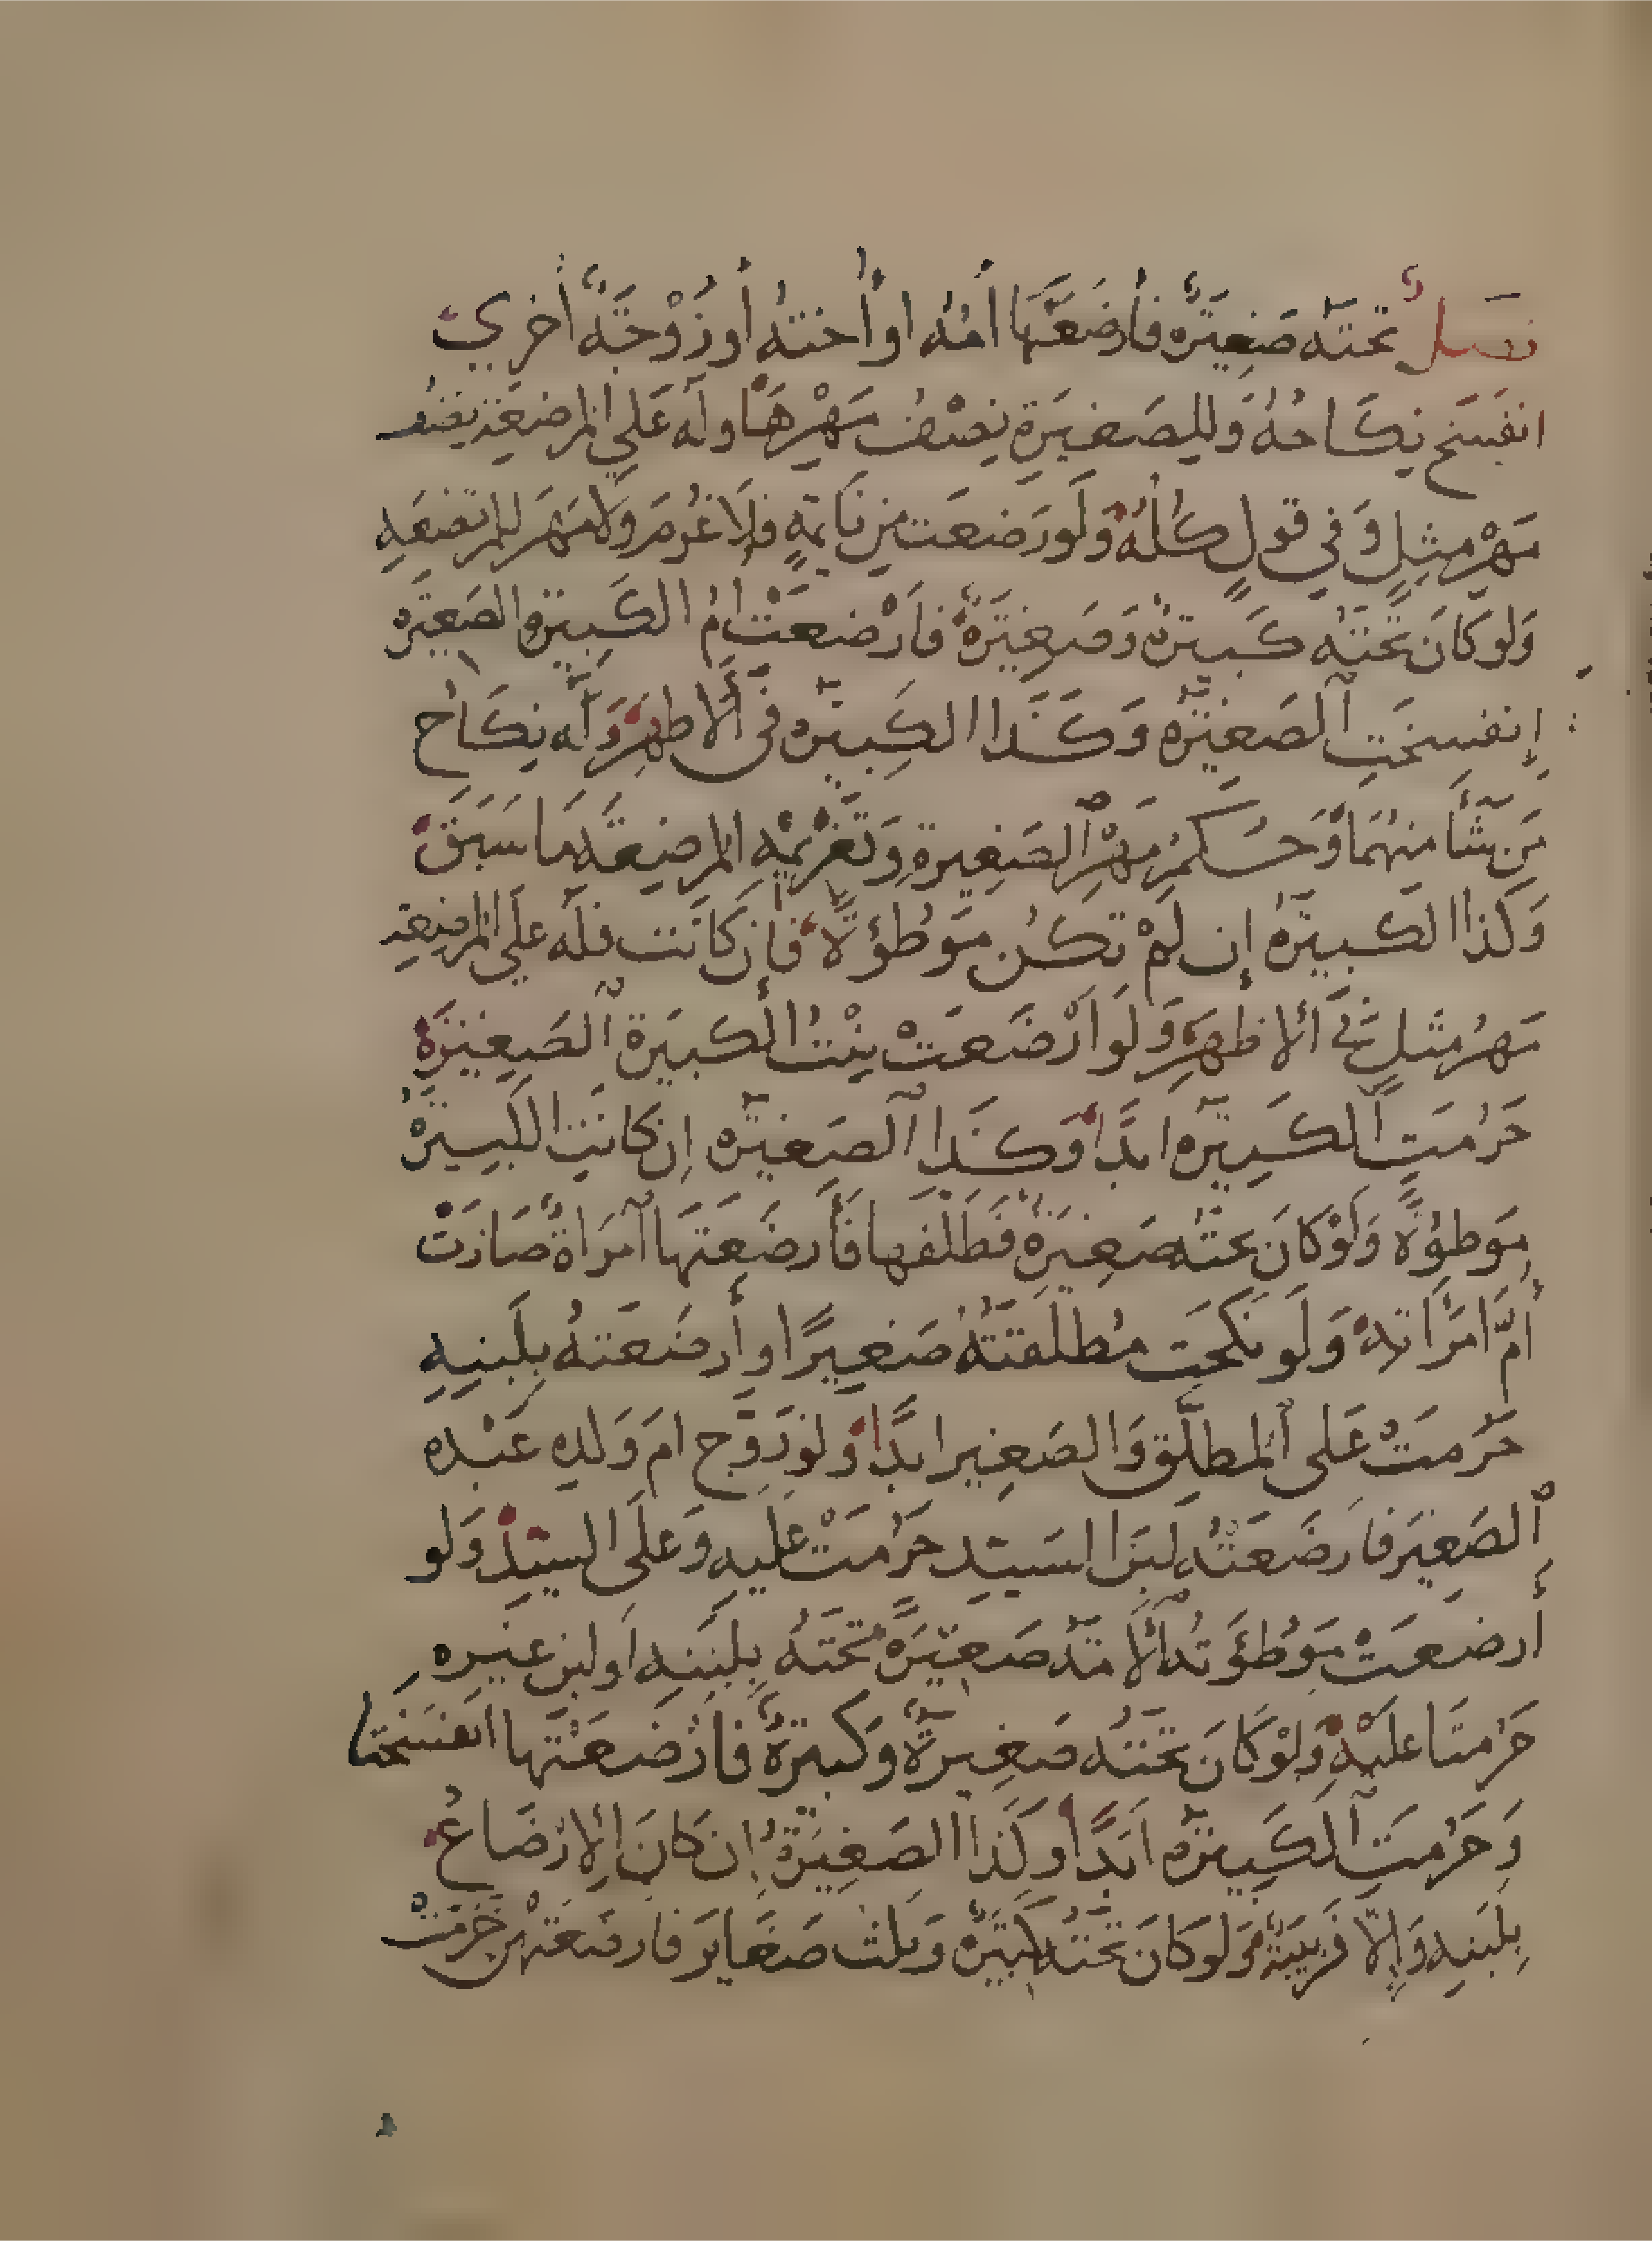 فصل تحته صغيرة فأرضعتها أمه او أخته أو زوجة أخرى
انفسخ نكاحه وللصغيرة نصف مهرها وله على المرضعة نصف
مهر مثل وفي قول كله ولو رضعت من نائمة فلا غرم ولا مهر للمرتضعة
ولو كان تحته كبيرة وصغيرة فأرضعت أم الكبيرة الصغيرة
إنفسخت الصغيرة وكذا الكبيرة في الأظهر وله نكاح
من شا منهما وحكم مهر الصغيرة وتغريمه المرضعة ما سبق
وكذا الكبيرة إن لم تكن موطوءة فإن كانت فله على المرضعة
مهر مثل في الأظهر ولو أرضعت بنت الكبيرة الصغيرة
حرمت الكبيرة ابدًا وكذا الصغيرة إن كانت الكبيرة
موطوءة ولو كان تحته صغيرة فطلقها فأرضعتها امرأة صارت
أم امرأته ولو نكحت مطلقته صغيرًا وأرضعته بلبنه
حرمت على المطلق والصغير ابدًا ولو زوج ام ولده عبده
الصغير فارضعته لبن السيد حرمت عليه وعلى السيد ولو
أرضعت موطؤته الأمة صغيرة تحته بلبنه أو لبن غيره
حرمتا عليه ولو كان تحته صغيرة وكبيرة فارضعتها انفسختا
وحرمت الكبيرة أبدًا وكذا الصغيرة إن كان الإرضاع
بلبنه وإلا فربيبة ولو كان تحته كبيرة وثلث صغاير فارضعتهن حرمت